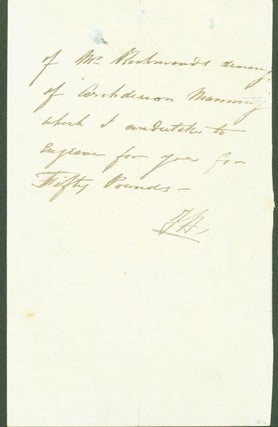 of Mr. Richmond's drawing
of Archdeacon Manning
which I undertake to
Engrave for you for
Fifty Pounds —
FH